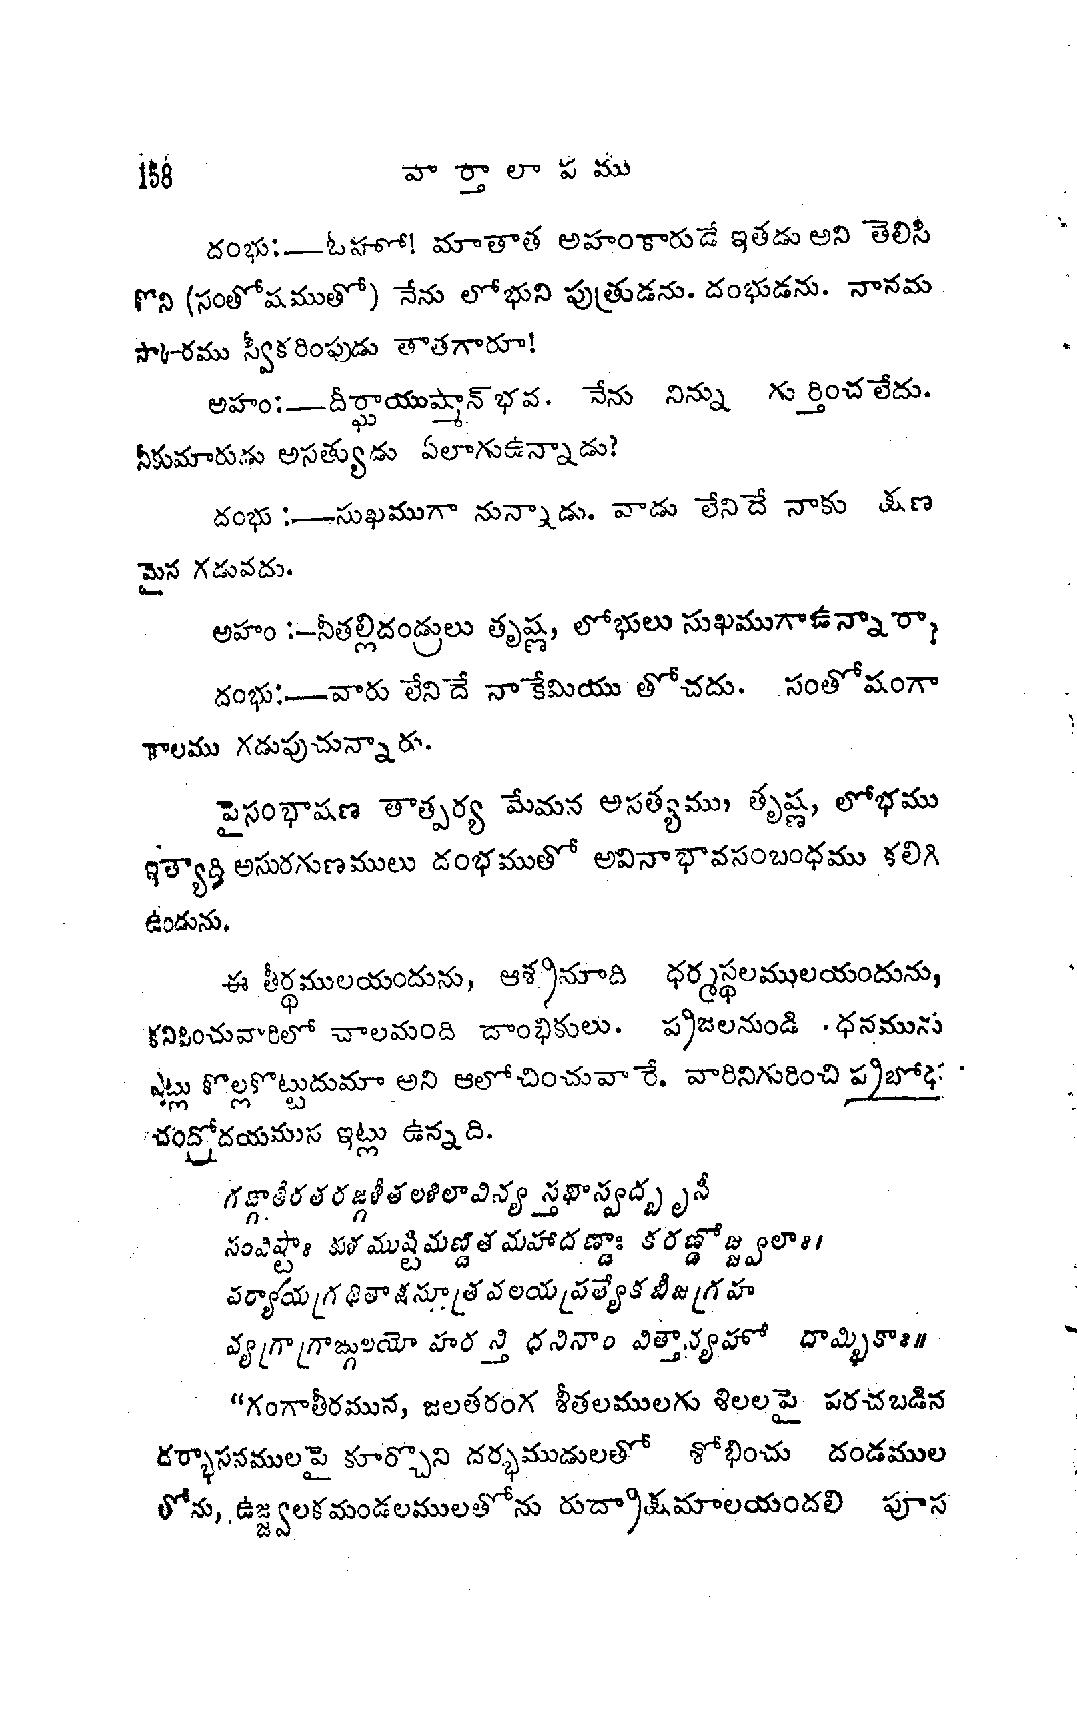 158 వార్తాలాపము
దంభు:—ఓహో! మాతాత అహంకారుడే ఇతడు అని తెలిసి
కొని (సంతోషముతో) నేను లోభుని పుత్రుడను. దంభుడను. నానమ
స్కారము స్వీకరింపుడు తాతగారూ!
అహం:—దీర్ఘాయుష్మాన్ భవ. నేను నిన్ను గుర్తించలేదు.
నీకుమారుడు అసత్యుడు ఏలాగుఉన్నాడు?
దంభు :—సుఖముగా నున్నాడు. వాడు లేనిదే నాకు క్షణ
మైన గడువదు.
అహం :—నీతల్లిదండ్రులు తృష్ణ, లోభులు సుఖముగాఉన్నారా,
దంభు:—వారు లేనిదే నాకేమియు తోచదు. సంతోషంగా
కాలము గడుపుచున్నారు.
పైసంభాషణ తాత్పర్య మేమన అసత్యము, తృష్ణ, లోభము
ఇత్యాది అసురగుణములు దంభముతో అవినాభావసంబంధము కలిగి
ఉండును.
ఈ తీర్థములయందును, ఆశ్రమాది ధర్మస్థలములయందును,
కనిపించువారిలో చాలమంది దాంభికులు. ప్రజలనుండి ధనమును
ఎట్లు కొల్లకొట్టుదుమా అని ఆలోచించువారే. వారినిగురించి ప్రబోధ
చంద్రోదయమున ఇట్లు ఉన్నది.
గఙ్గాతీరతరఙ్గశీతలశిలావిన్యస్తభాస్వద్బృసీ
సంవిష్టాః కుశముష్టిమణ్డితమహాదణ్డాః కరణ్డోజ్జ్వలాః।
పర్యాయగ్రథితాక్షసూత్రవలయప్రత్యేకబీజగ్రహ
వ్యగ్రాగ్రాఙ్గులయో హరన్తి ధనినాం విత్తాన్యహో దామ్భికాః॥
“గంగాతీరమున, జలతరంగ శీతలములగు శిలలపై పరచబడిన
దర్భాసనములపై కూర్చొని దర్భముడులతో శోభించు దండముల
తోను, ఉజ్జ్వలకమండలములతోను రుద్రాక్షమాలయందలి పూస